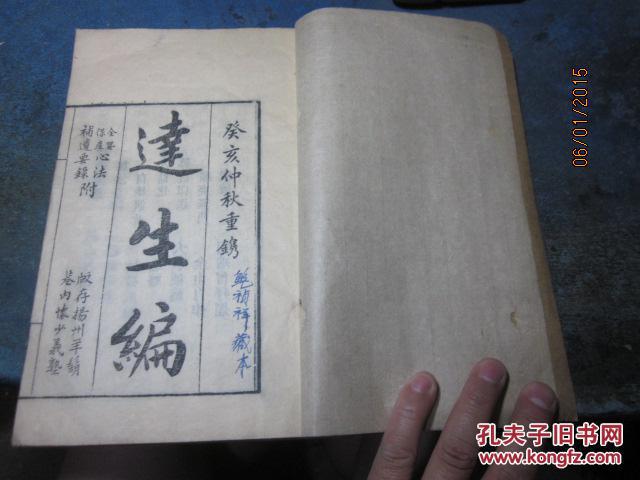 癸亥仲秋重鐫
鮑禎祥藏本
達生編
全嬰
保產心法
補遺要錄附
板存揚州羊鬍
巷內懷少義塾
06/01/2015
孔夫子旧书网
www.kongfz.com